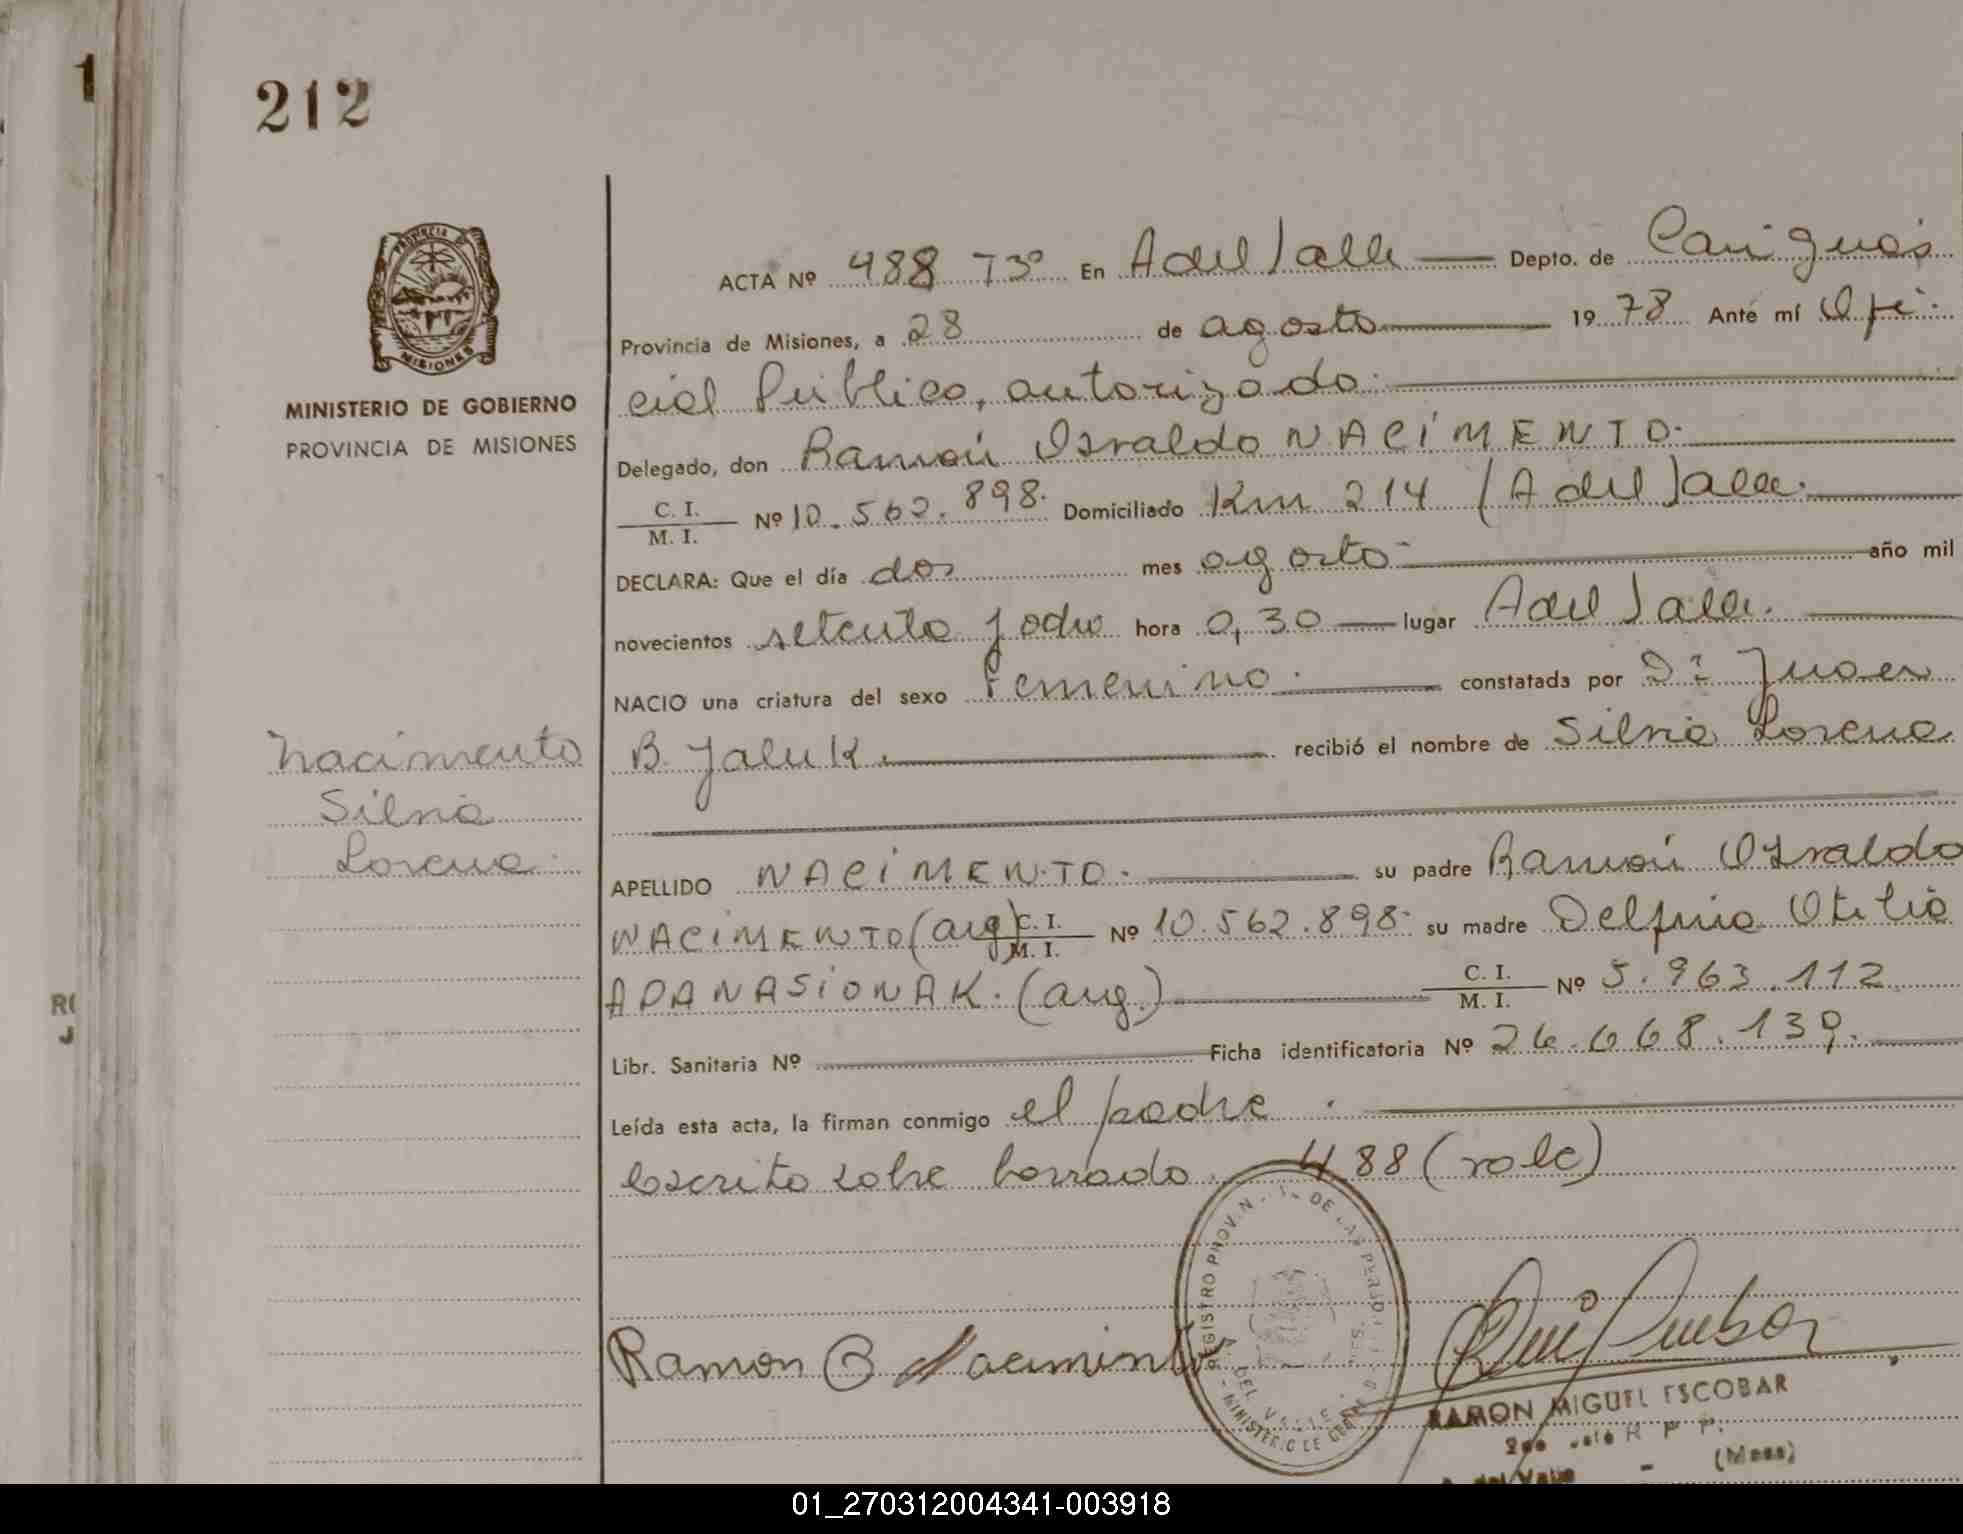 1
212
PROVINCIA DE
MISIONES
MINISTERIO DE GOBIERNO
PROVINCIA DE MISIONES
ACTA Nº 488 Tº3 En A del Valle Depto. de Cainguás
Provincia de Misiones, a 28 de agosto 1978 Ante mí Ofi-
cial Público, autorizado.
Delegado, don Ramón Osvaldo NACIMENTO.
C. I.
M. I. Nº 10.562.898. Domiciliado Km 214 (A del Valle.
DECLARA: Que el día dos mes agosto año mil
novecientos setenta y ocho hora 0,30 lugar A del Valle.
NACIO una criatura del sexo femenino. constatada por Dr Juan
B. Yaluk. recibió el nombre de Silvia Lorena
Nacimento
Silvia
Lorena.
APELLIDO NACIMENTO. su padre Ramón Osvaldo
NACIMENTO (arg) C. I. M. I. Nº 10.562.898. su madre Delfina Otilia
APANASIONAK. (arg.) C. I. M. I. Nº 5.963.112
Libr. Sanitaria Nº Ficha identificatoria Nº 26.668.139.
Leída esta acta, la firman conmigo el padre.
Escrito sobre borrado. 488 (vale)
Ramon O Nacimento
REGISTRO PROV DE LAS PERSONAS
MINISTERIO DE
DEL VALLE
RAMON MIGUEL ESCOBAR
(Mnes)
RO
J
01_270312004341-003918